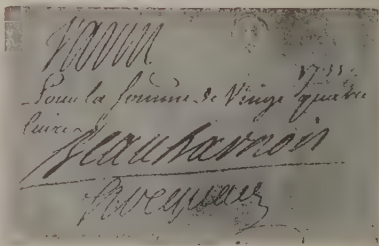 1733
Pour la somme de Vingt quatre
livres
Beauharnois
Hocquart